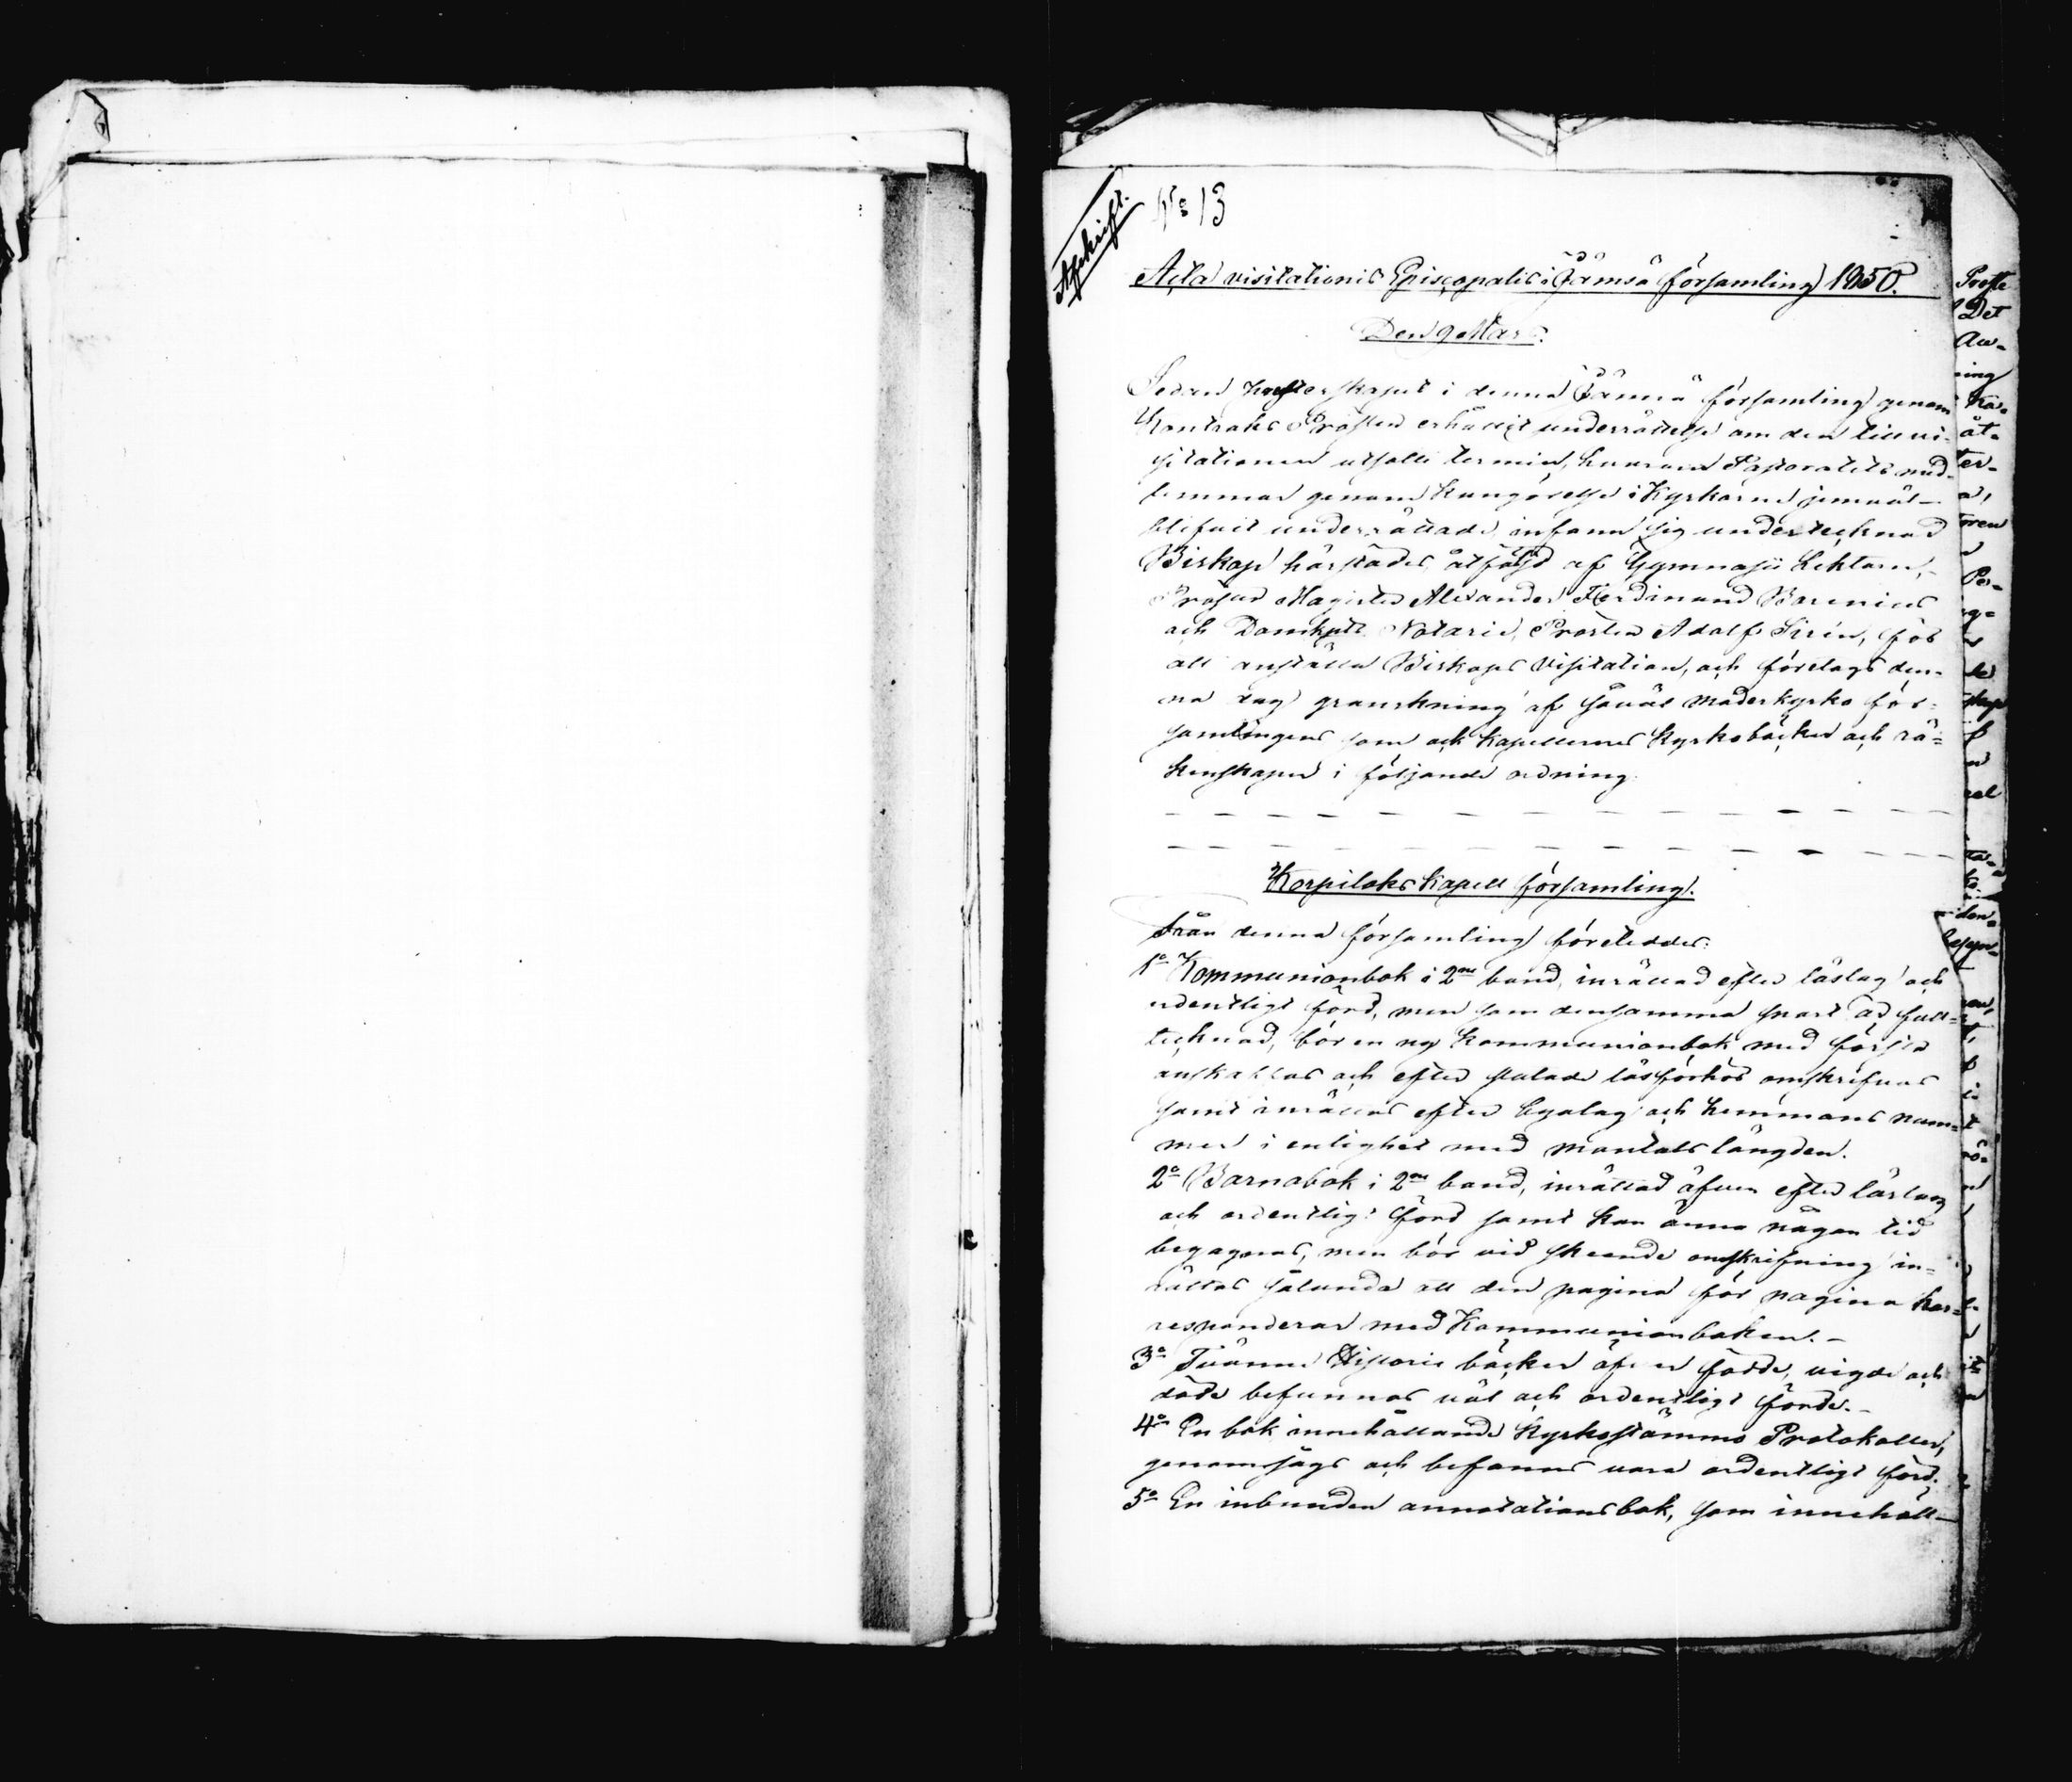 Afskrift.
No 13
Acta visitationis Episcopalis i Jämsä församling 1850.
Den 9 Mars.
Sedan Presterskapet i denna Jämsä församling genom
Kontrakts Prosten erhållit underrättelse om den till vi-
sitationen utsatte termin, hvarom Pastoratets med-
lemmar genom kungörelse i Kyrkorne jemväl
blifvit underrättade, infann sig undertecknad
Biskop härstädes, åtföljd af Gymnasii Lektorn,
Prosten Magister Alexander Ferdinand Borenius
och Domkapitl. Notarien, Prosten Adolf Sirén, för
att anställa Biskops Visitation, och företogs den-
na dag granskning af såväl moderkyrko för-
samlingens som och kapellernes kyrkoböcker och rä-
kenskaper i följande ordning.
Korpilaks Kapell församling.
Från denna församling företeddes:
1o Kommunionbok i 2ne band, inrättad efter läslag och
ordentligt förd, men som densamma snart är full-
tecknad, bör en ny Kommunionbok med första
anskaffas och efter slutade läsförhör omskrifvas
samt inrättas efter byalag och hemmans num-
mer i enlighet med mantalslängden.
2o Barnabok i 2ne band, inrättad äfven efter läslag
och ordentligt förd samt kan ännu någon tid
begagnas, men bör vid skeende omskrifning in-
rättas sålunda att den pagina för pagina kor-
responderar med Kommunionboken.-
3o Tvänne Historie böcker öfver födde, vigde och
döde befunnos väl och ordentligt förde.-
4o En bok innehållande Kyrkostämmo Protokoller,
genomsågs och befanns vara ordentligt förd.
5o En inbunden annotationsbok, som innehåll-